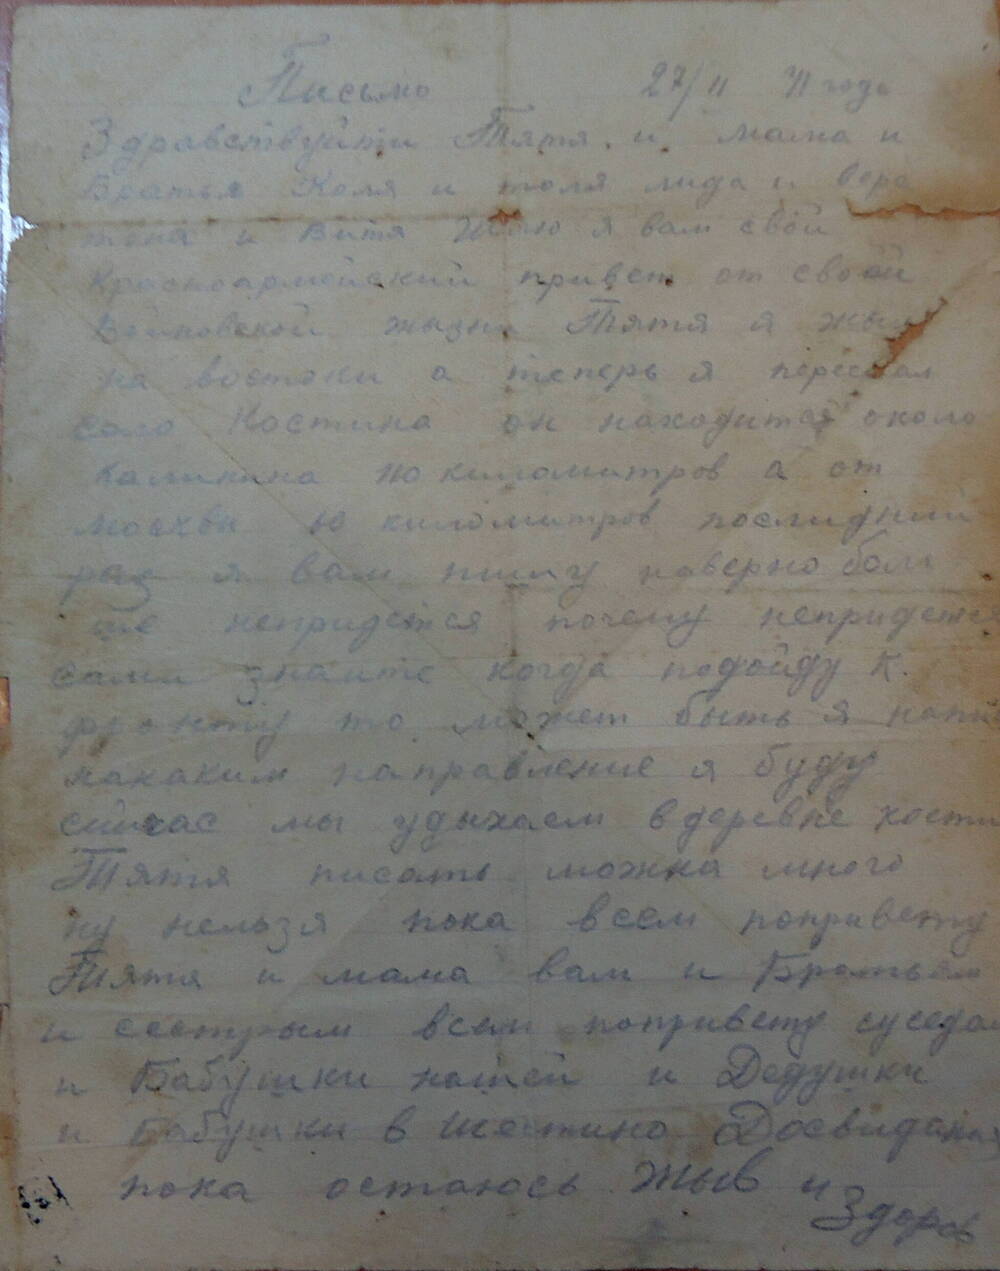 Письмо 27/11 41 года
Здравствуйти Тятя и мама и
Братья Коля и толя лида и вера
тоня и Витя Шлю я вам свой
Красноармейский привет от своей
жызни Тятя я жыл
на востоки а теперь я переехал
село Костина он находится около
Калинина 40 киломитров а от
Москвы киломитров послидний
раз я вам пишу наверно боль
ше непридется почему непридется
сами знаите когда подойду к
фронту то может быть я
направление я буду
сийчас мы удыхаем в деревне кости
Тятя писать можна много
ну нельзя пока всем попривету
Тятя и мама вам и Братьям
и сестрым всем поприветту суседам
и Бабушки нашей и Дедушки
и Бабушки в Досвидания
пока остаюсь Жыв и
Здоров